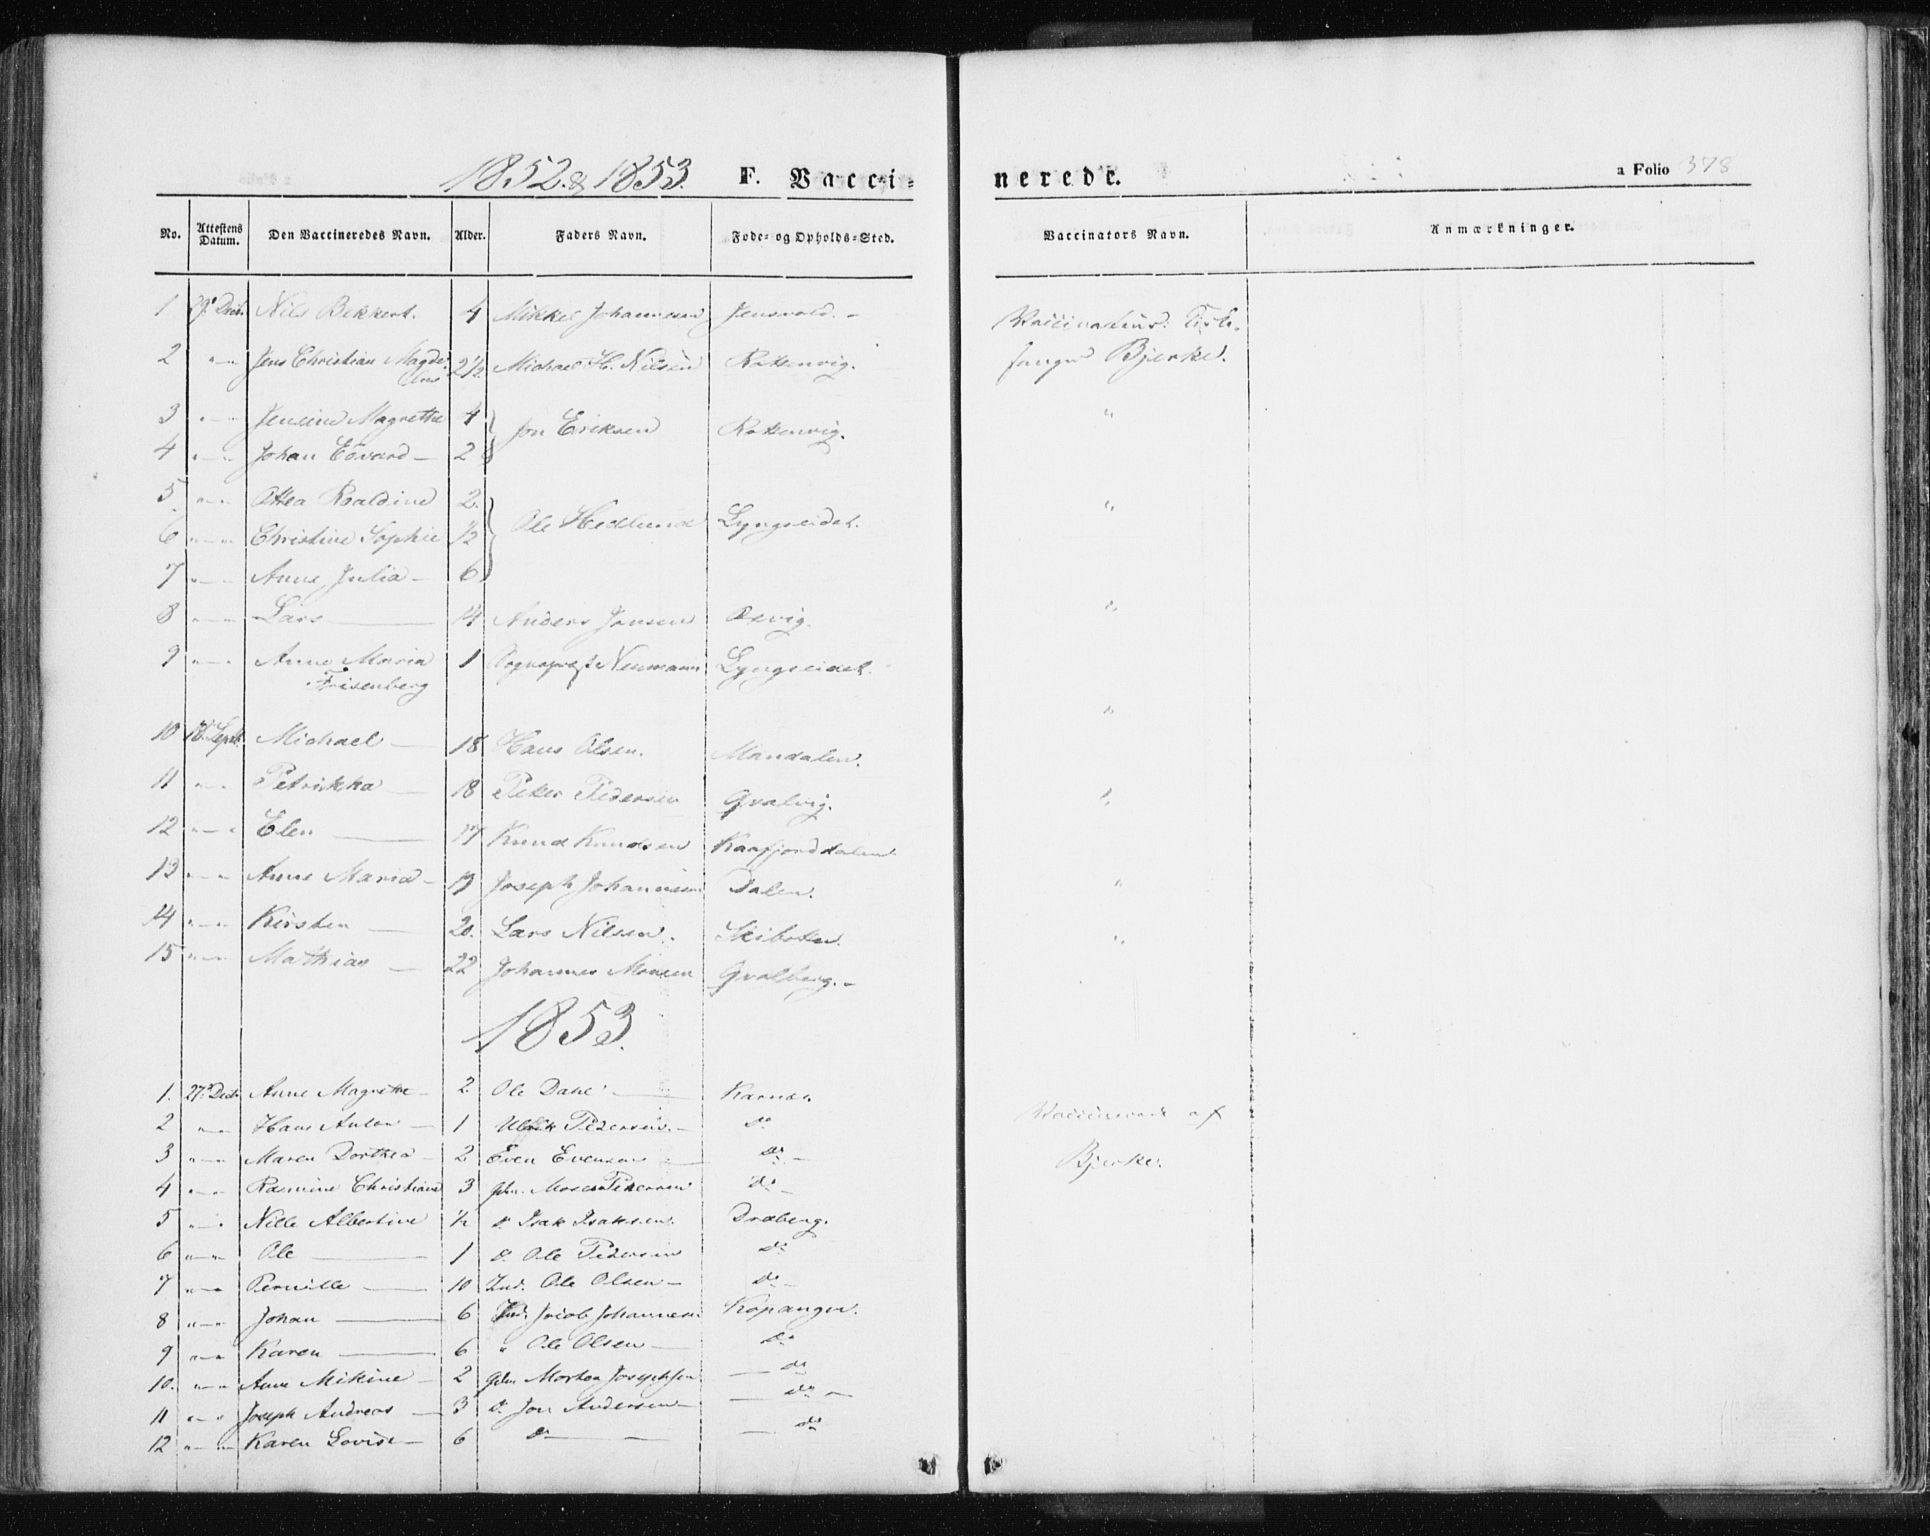 1852. & 1853. F. Vaccinerede. a Folio 378
No. Attestens Datum. Den Vaccineredes Navn. Alder. Faders Navn. Føde- og Opholds-Sted. Vaccinators Navn. Anmærkninger.
1 Nils Bekkert. 4 Mikkel Johannesen Jensvold. -
2 " - " Jens Christian Magde- 2 1/2 Michael H. Nilsen Rottenvig. Bjerke.
3 " - " Jensine Magrethe 4 Jon Eriksen Rottenvig. "
4 " - " Johan Edvard - 2
5 " - " Ottea Roaldine 2. Ole Hedlund Lyngseidet. "
6 " - " Christine Sophie 1/2
7 " - " Anne Julia - 6
8 " - " Lars - 14 Anders Jonsen Oxvig. "
9 " - " Anne Maria 1 Sognepræst Neumann Lyngseidet.
Frisenberg
10 18. Septb. Michael - 18 Hans Olsen. Mandalen. "
11 " - " Petrikka - 18 Peter Pedersen Qvalvig. "
12 " - " Elen - 17 Knud Knudsen Kaafjorddalen
13 " - " Anne Maria - 19 Joseph Johannesen Dalen. "
14 " - " Kirsten - 20. Lars Nilsen. Skibotten. "
15 " - " Mathias - 22 Johannes Monsen Qvalberg. -
1853.
1. 27. Decbr. Anne Magrethe - 2. Ole Dahl - Karnes.
2 " - " Hans Anton - 1 Ulrik Pedersen. - do Vaccinerede af
3 " - " Maren Dorthea - 2. Even Evensen - do - Bjerke.
4 " - " Rasmine Christiane 3 Gdm. Moses Pedersen do -
5 " - " Nille Albertine 1/2 do. Isak Isaksen. Draberg.
6 " - " Ole - 1 do. Ole Pedersen do
7 " - " Pernille - 10 Ind. Ole Olsen - do -
8 " - " Johan - 6 Ind. Jacob Johannesen Kopangen.
9 " - " Karen - 6 " Ole Olsen - do
10. " - " Anne Mikine - 2 Gdm Morten Josephsen - do
11 " - " Joseph Andreas - 3 do. Jon Andersen - - do -
12 " - " Karen Lovise - 6 do - - do